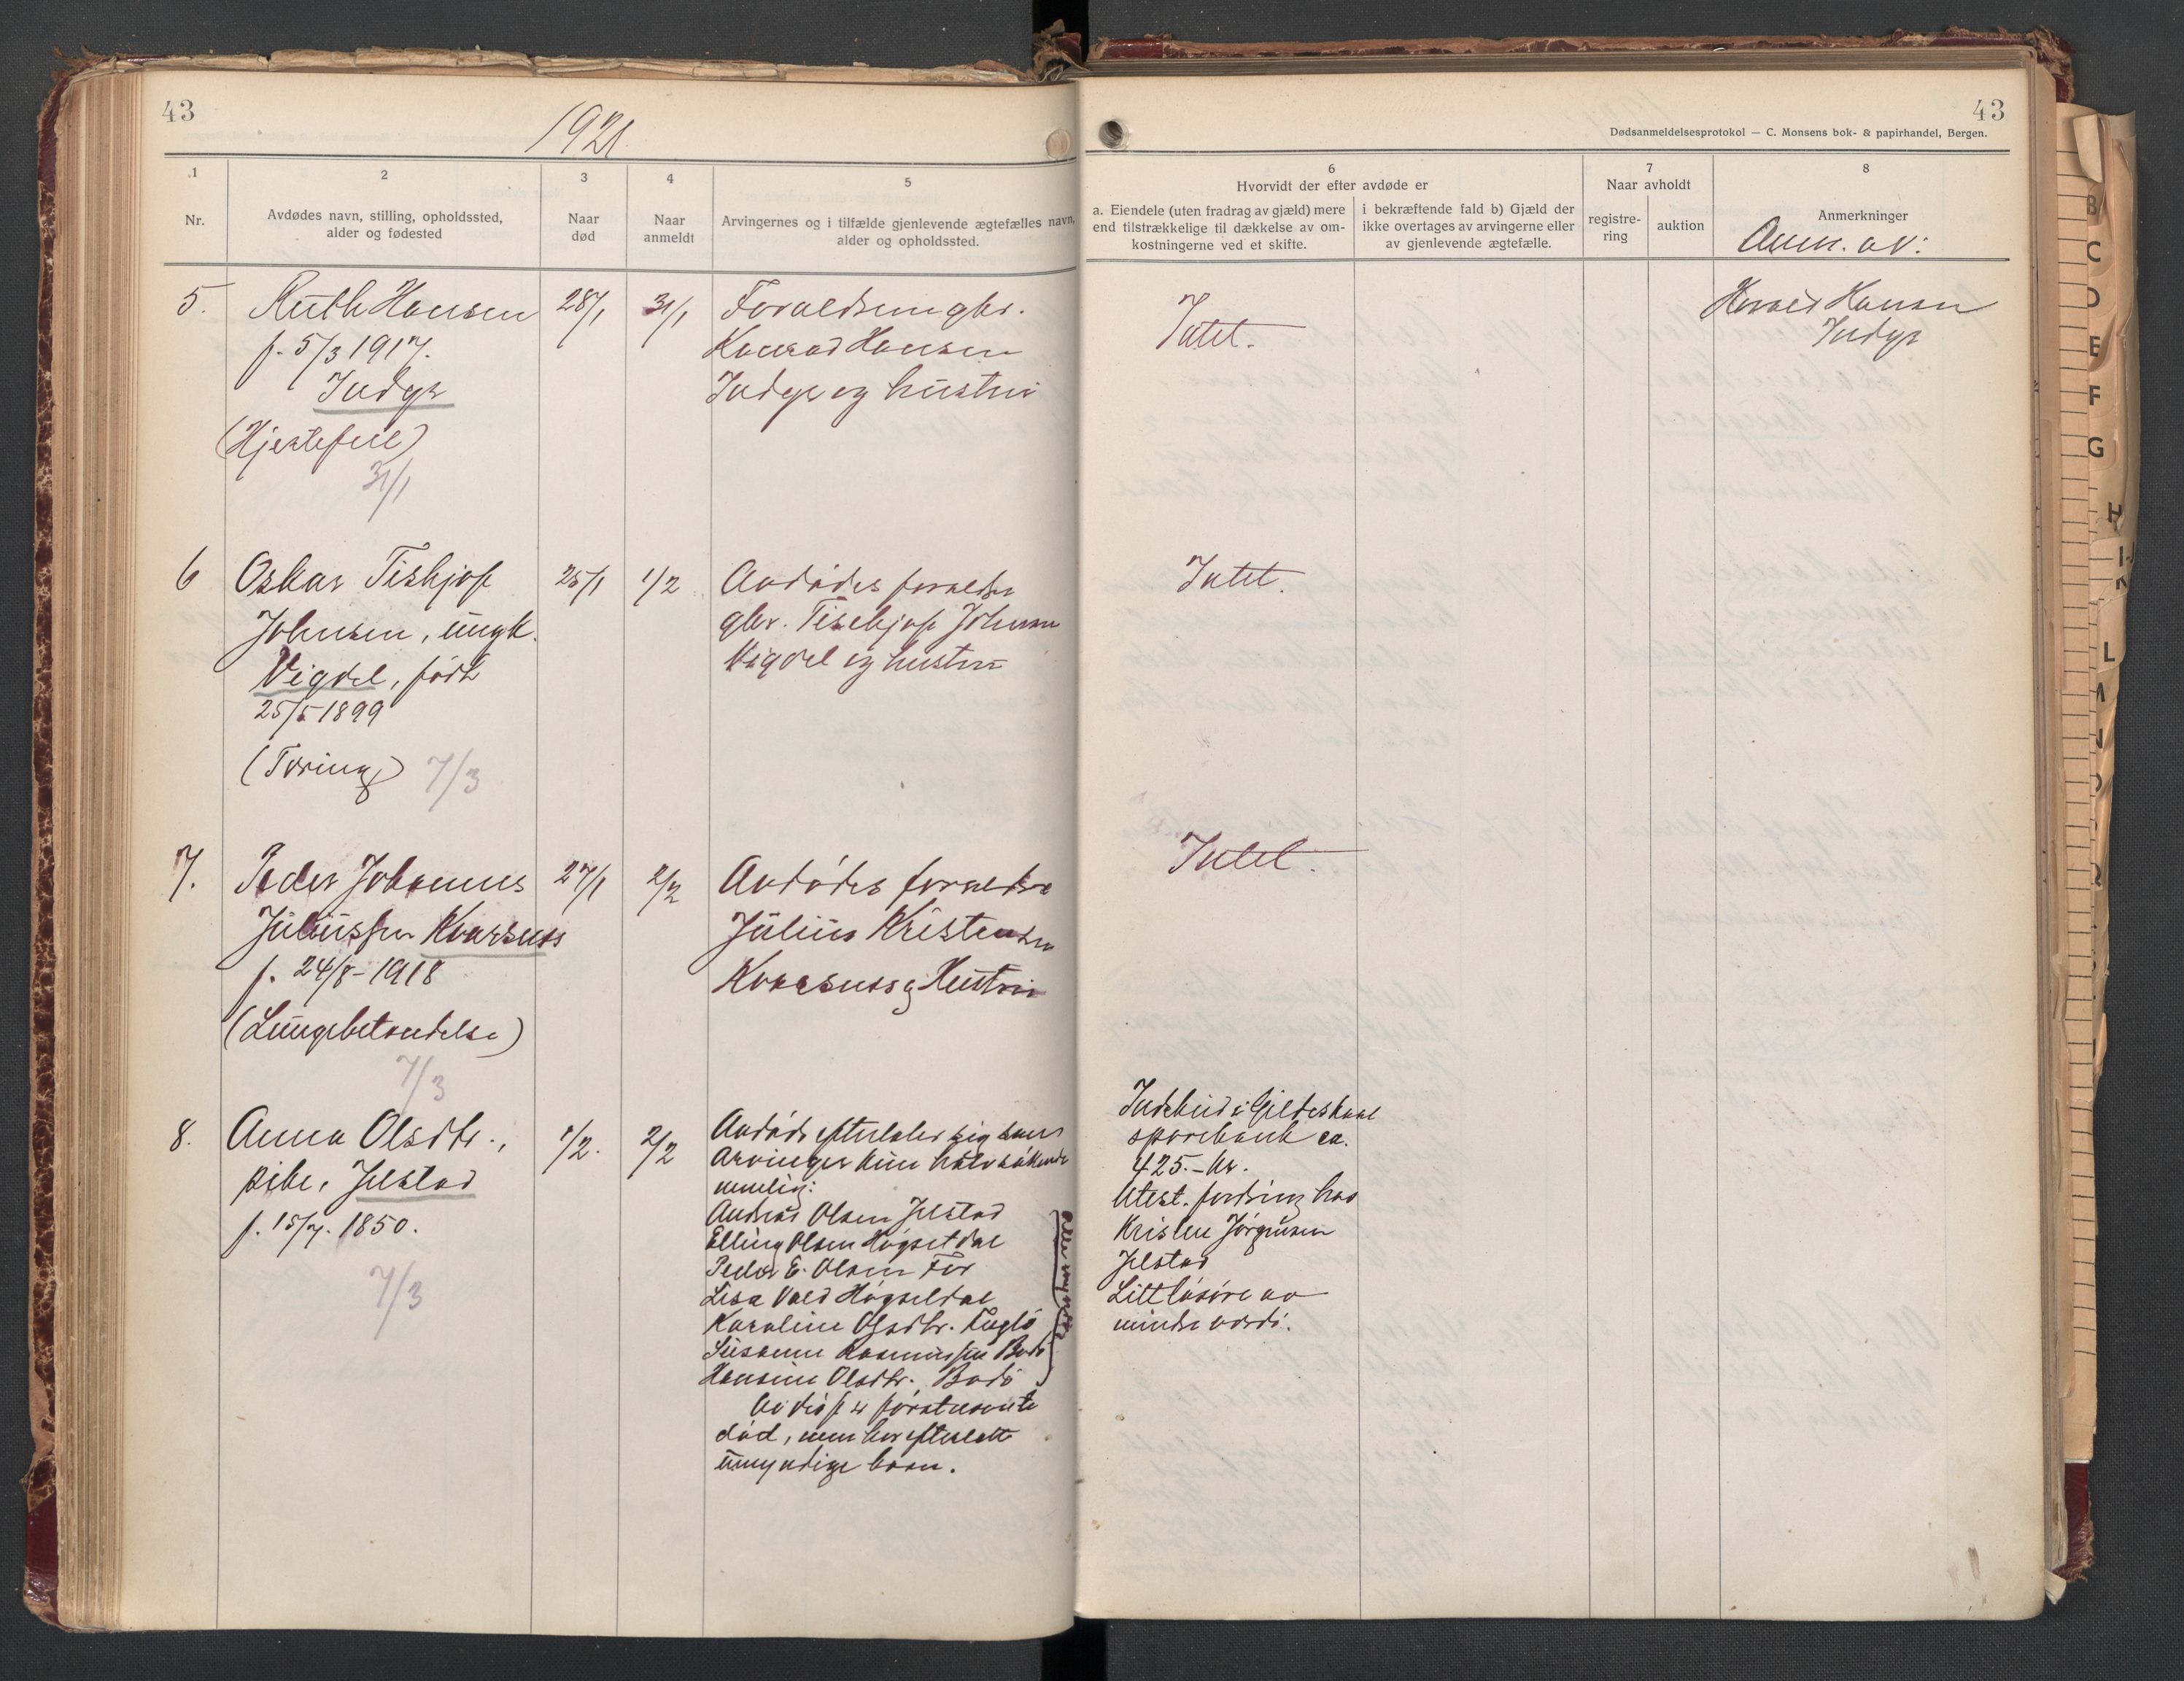 43
1921.
1
2
3
4
5
Nr.
Avdødes navn, stilling, opholdssted,
alder og fødested
Naar
død
Naar
anmeldt
Arvingernes og i tilfælde gjenlevende ægtefælles navn,
alder og opholdssted.
5. Ruth Hansen 28/1 31/1 Foraldrene gbr.
f. 5/3 1917. Konrad Hansen
Indyr Indyr og hustru
(Hjertefeil)
31/1
6 Oskar Johnsen, ungk. 25/1 1/2 Avdødes foraldre
gbr. Johnsen
Vigdel, født Vigdel og hustru
25/5 1899
(Tæring) 7/3
7. Peder Johannes 27/1 2/2 Avdødes foraldre
Juliussen Kvarsnes Julius Kristensen
f. 24/8-1918 Kvarsnes og Hustru
(Lungebetændelse)
7/3
8. Anna Olsdtr., 1/2. 2/2 Avdøde efterlater sig som
pike, Jelstad arvinger kun halvsøskende
f. 15/7. 1850. nemlig:
7/3
Andreas Olsen Jelstad
Elling Olsen Høgsetdal
Peder E. Olsen For
Lisa Høgsetdal
Karoline Olsdtr. Fuglø
Susanne Rasmussen Bodø
Hansine Olsdtr. Bodø
alle myndig
4 førstnevnte
død, men har efterlatt
umyndige barn.
43
Dødsanmeldelsesprotokol — C. Monsens bok- & papirhandel, Bergen.
6
Hvorvidt der efter avdøde er
7
Naar avholdt
8
a. Eiendele (uten fradrag av gjæld) mere
end tilstrækkelige til dækkelse av om-
kostningerne ved et skifte.
i bekræftende fald b) Gjæld der
ikke overtages av arvingerne eller
av gjenlevende ægtefælle.
registre-
ring
auktion
Anmerkninger
Anm. av:
Intet.
Hansen
Indyr
Intet.
Intet.
Indskud i Gildeskaal
sparebank ca.
425.- kr.
Utest. fordring hos
Kristen Jørgensen
Jelstad
Litt løsøre av
mindre værdi.
B
C
D
E
F
G
H
L